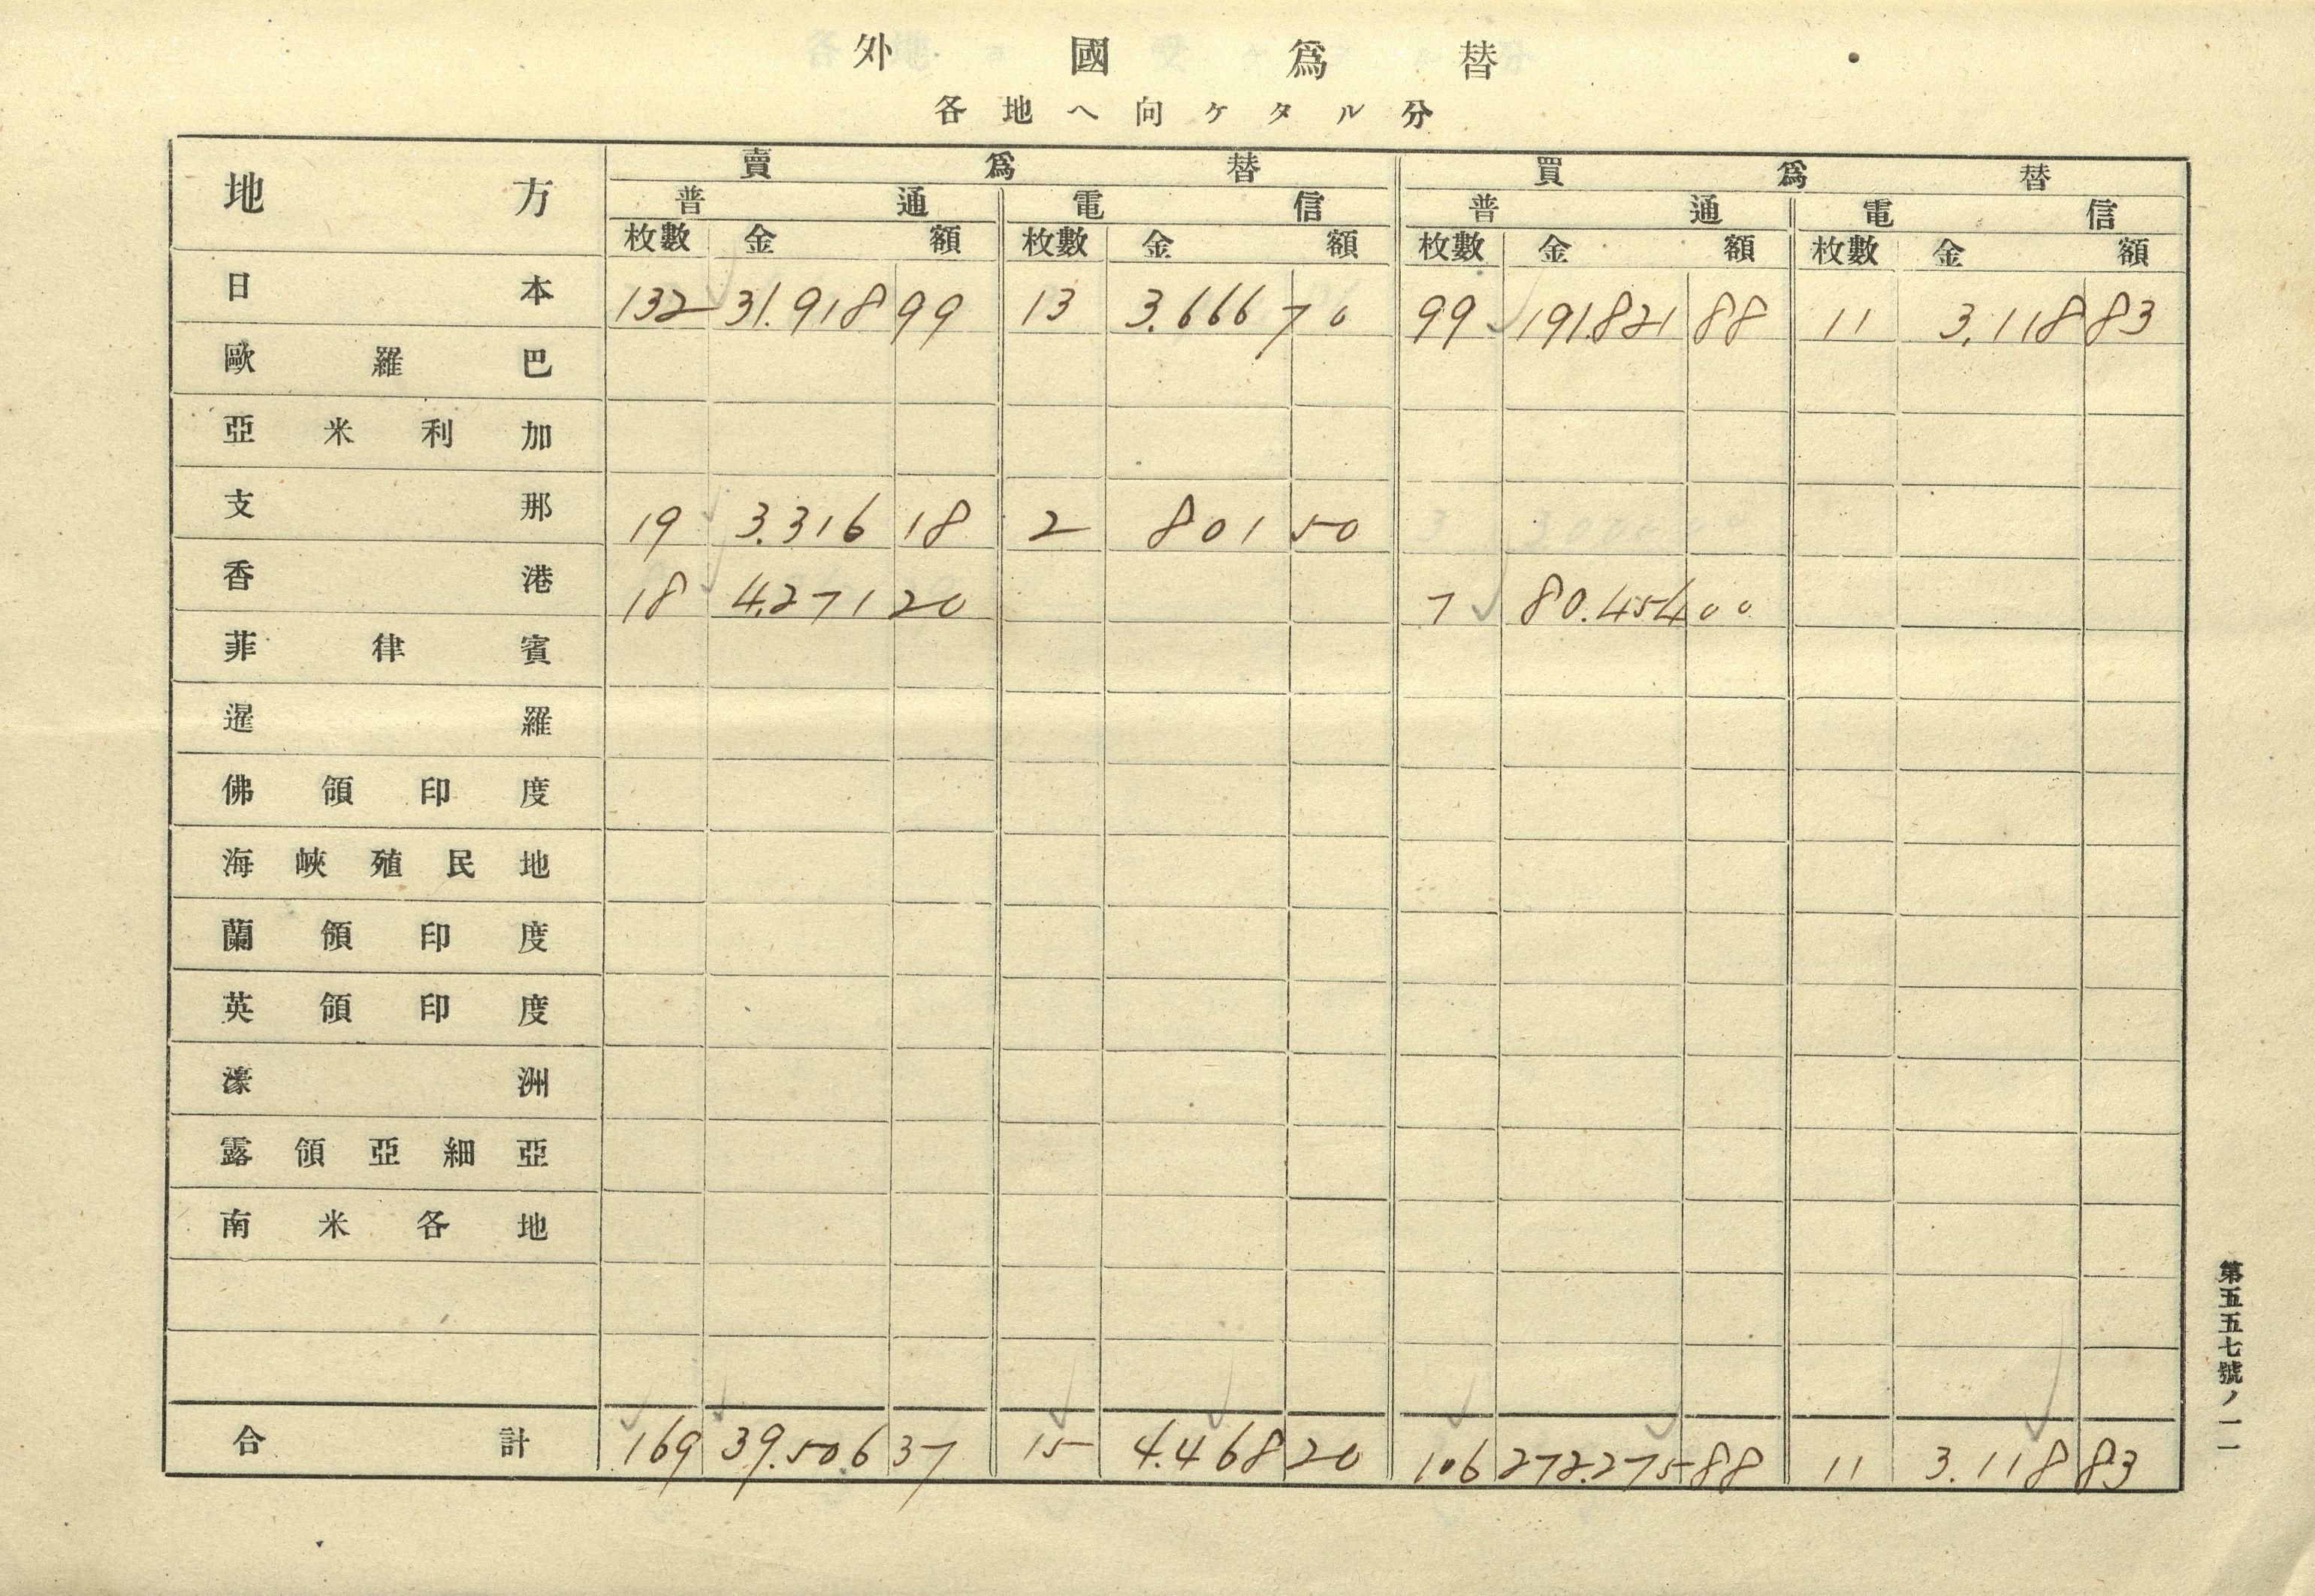 外國爲替
各地ヘ向ケタル分
地方 賣爲替 買爲替
普通 電信 普通 電信
枚數 金額 枚數 金額 枚數 金額 枚數 金額
日本 132 31.918 99 13 3.666 70 99 191.821 88 11 3.118 83
歐羅巴
亞米利加
支那 19 3.316 18 2 801 50
香港 18 4.271 20 7 80.454 00
菲律賓
暹羅
佛領印度
海峽殖民地
蘭領印度
英領印度
濠洲
露領亞細亞
南米各地
合計 169 39.506 37 15 4.468 20 106 272.275 88 11 3.118 83
第五五七號ノ一一